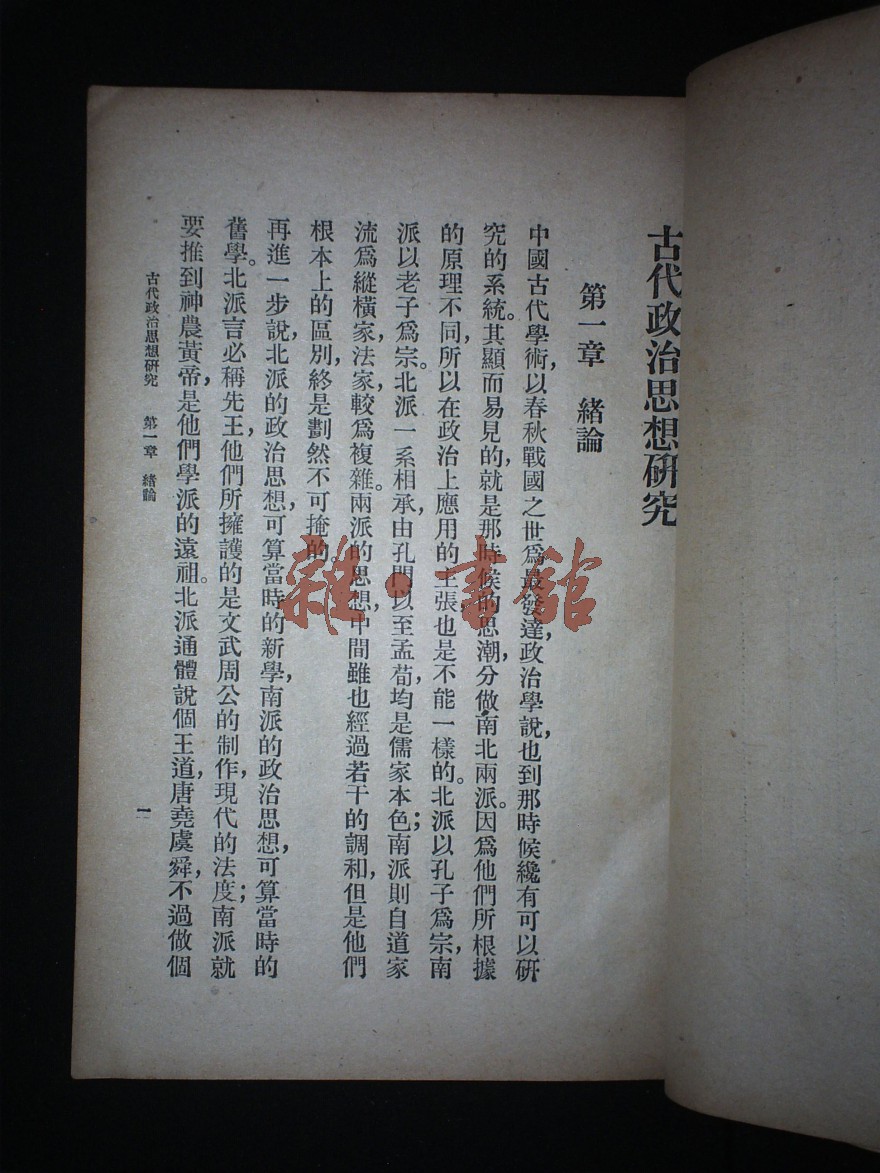 古代政治思想硏究
第一章 緒論
中國古代學術，以春秋戰國之世爲最發達，政治學說，也到那時候纔有可以硏
究的系統。其顯而易見的，就是那時候的思潮，分做南北兩派。因爲他們所根據
的原理不同，所以在政治上應用的主張，也是不能一樣的。北派以孔子爲宗，南
派以老子爲宗。北派一系相承，由孔門以至孟荀，均是儒家本色；南派則自道家
流爲縱橫家法家，較爲複雜。兩派的思想，中間雖也經過若干的調和，但是他們
根本上的區別，終是劃然不可掩的。
再進一步說，北派的政治思想，可算當時的新學，南派的政治思想，可算當時的
舊學。北派言必稱先王，他們所擁護的是文武周公的制作，現代的法度；南派就
要推到神農黃帝，是他們學派的遠祖。北派通體說個王道，唐堯虞舜，不過做個
古代政治思想硏究 第一章 緒論
一
雜·書館